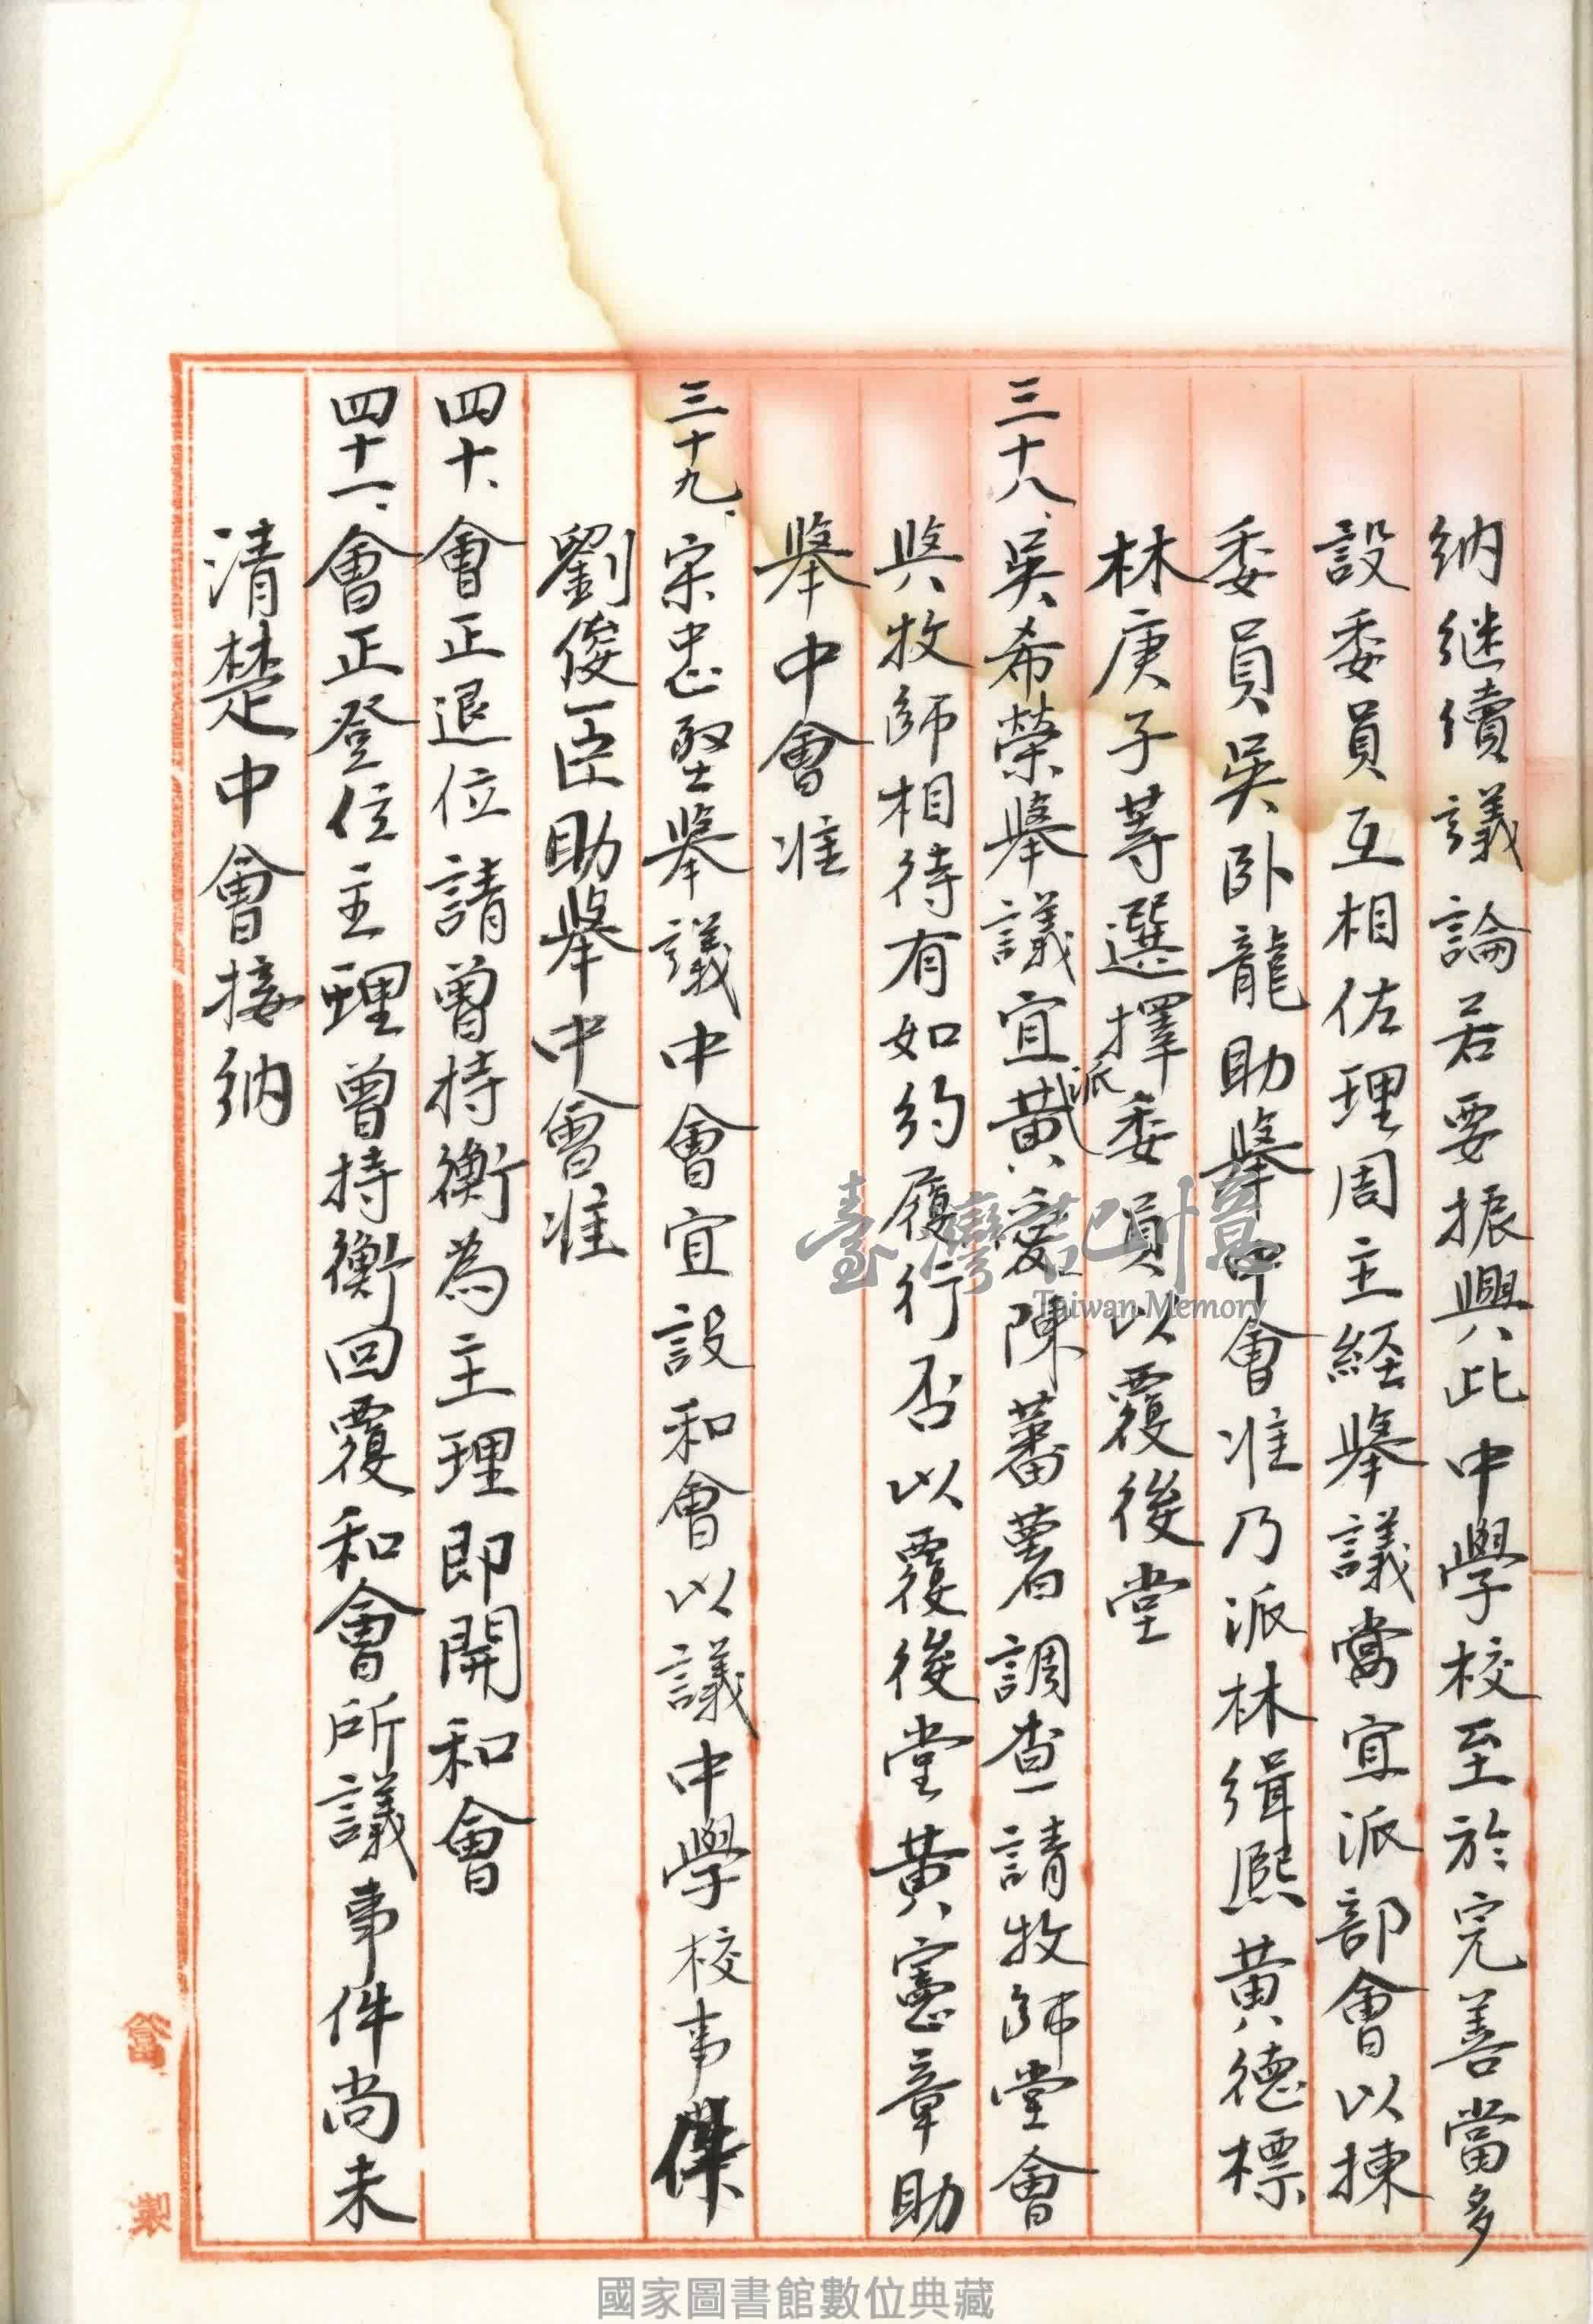 納継續議論若要振興此中學校至於完善當多
設委員互相佐理周主経舉議當宜派部會以揀
委員吳卧龍助舉中會准乃派林緝熙黃德標
林庚子等選擇委員以覆後堂
三十八、吳希榮舉議宜派黃受陳蕃薯調查請牧師堂會
與牧師相待有如約履行否以覆後堂黃憲章助
舉中會准
三十九、宋忠堅舉議中會宜設和會以議中學校事件
劉俊臣助舉中會准
四十、會正退位請曾持衡為主理即開和會
四十一、會正登位主理曾持衡回覆和會所議事件尚未
清楚中會接納
會
製
臺灣記憶
Taiwan Memory
國家圖書館數位典藏